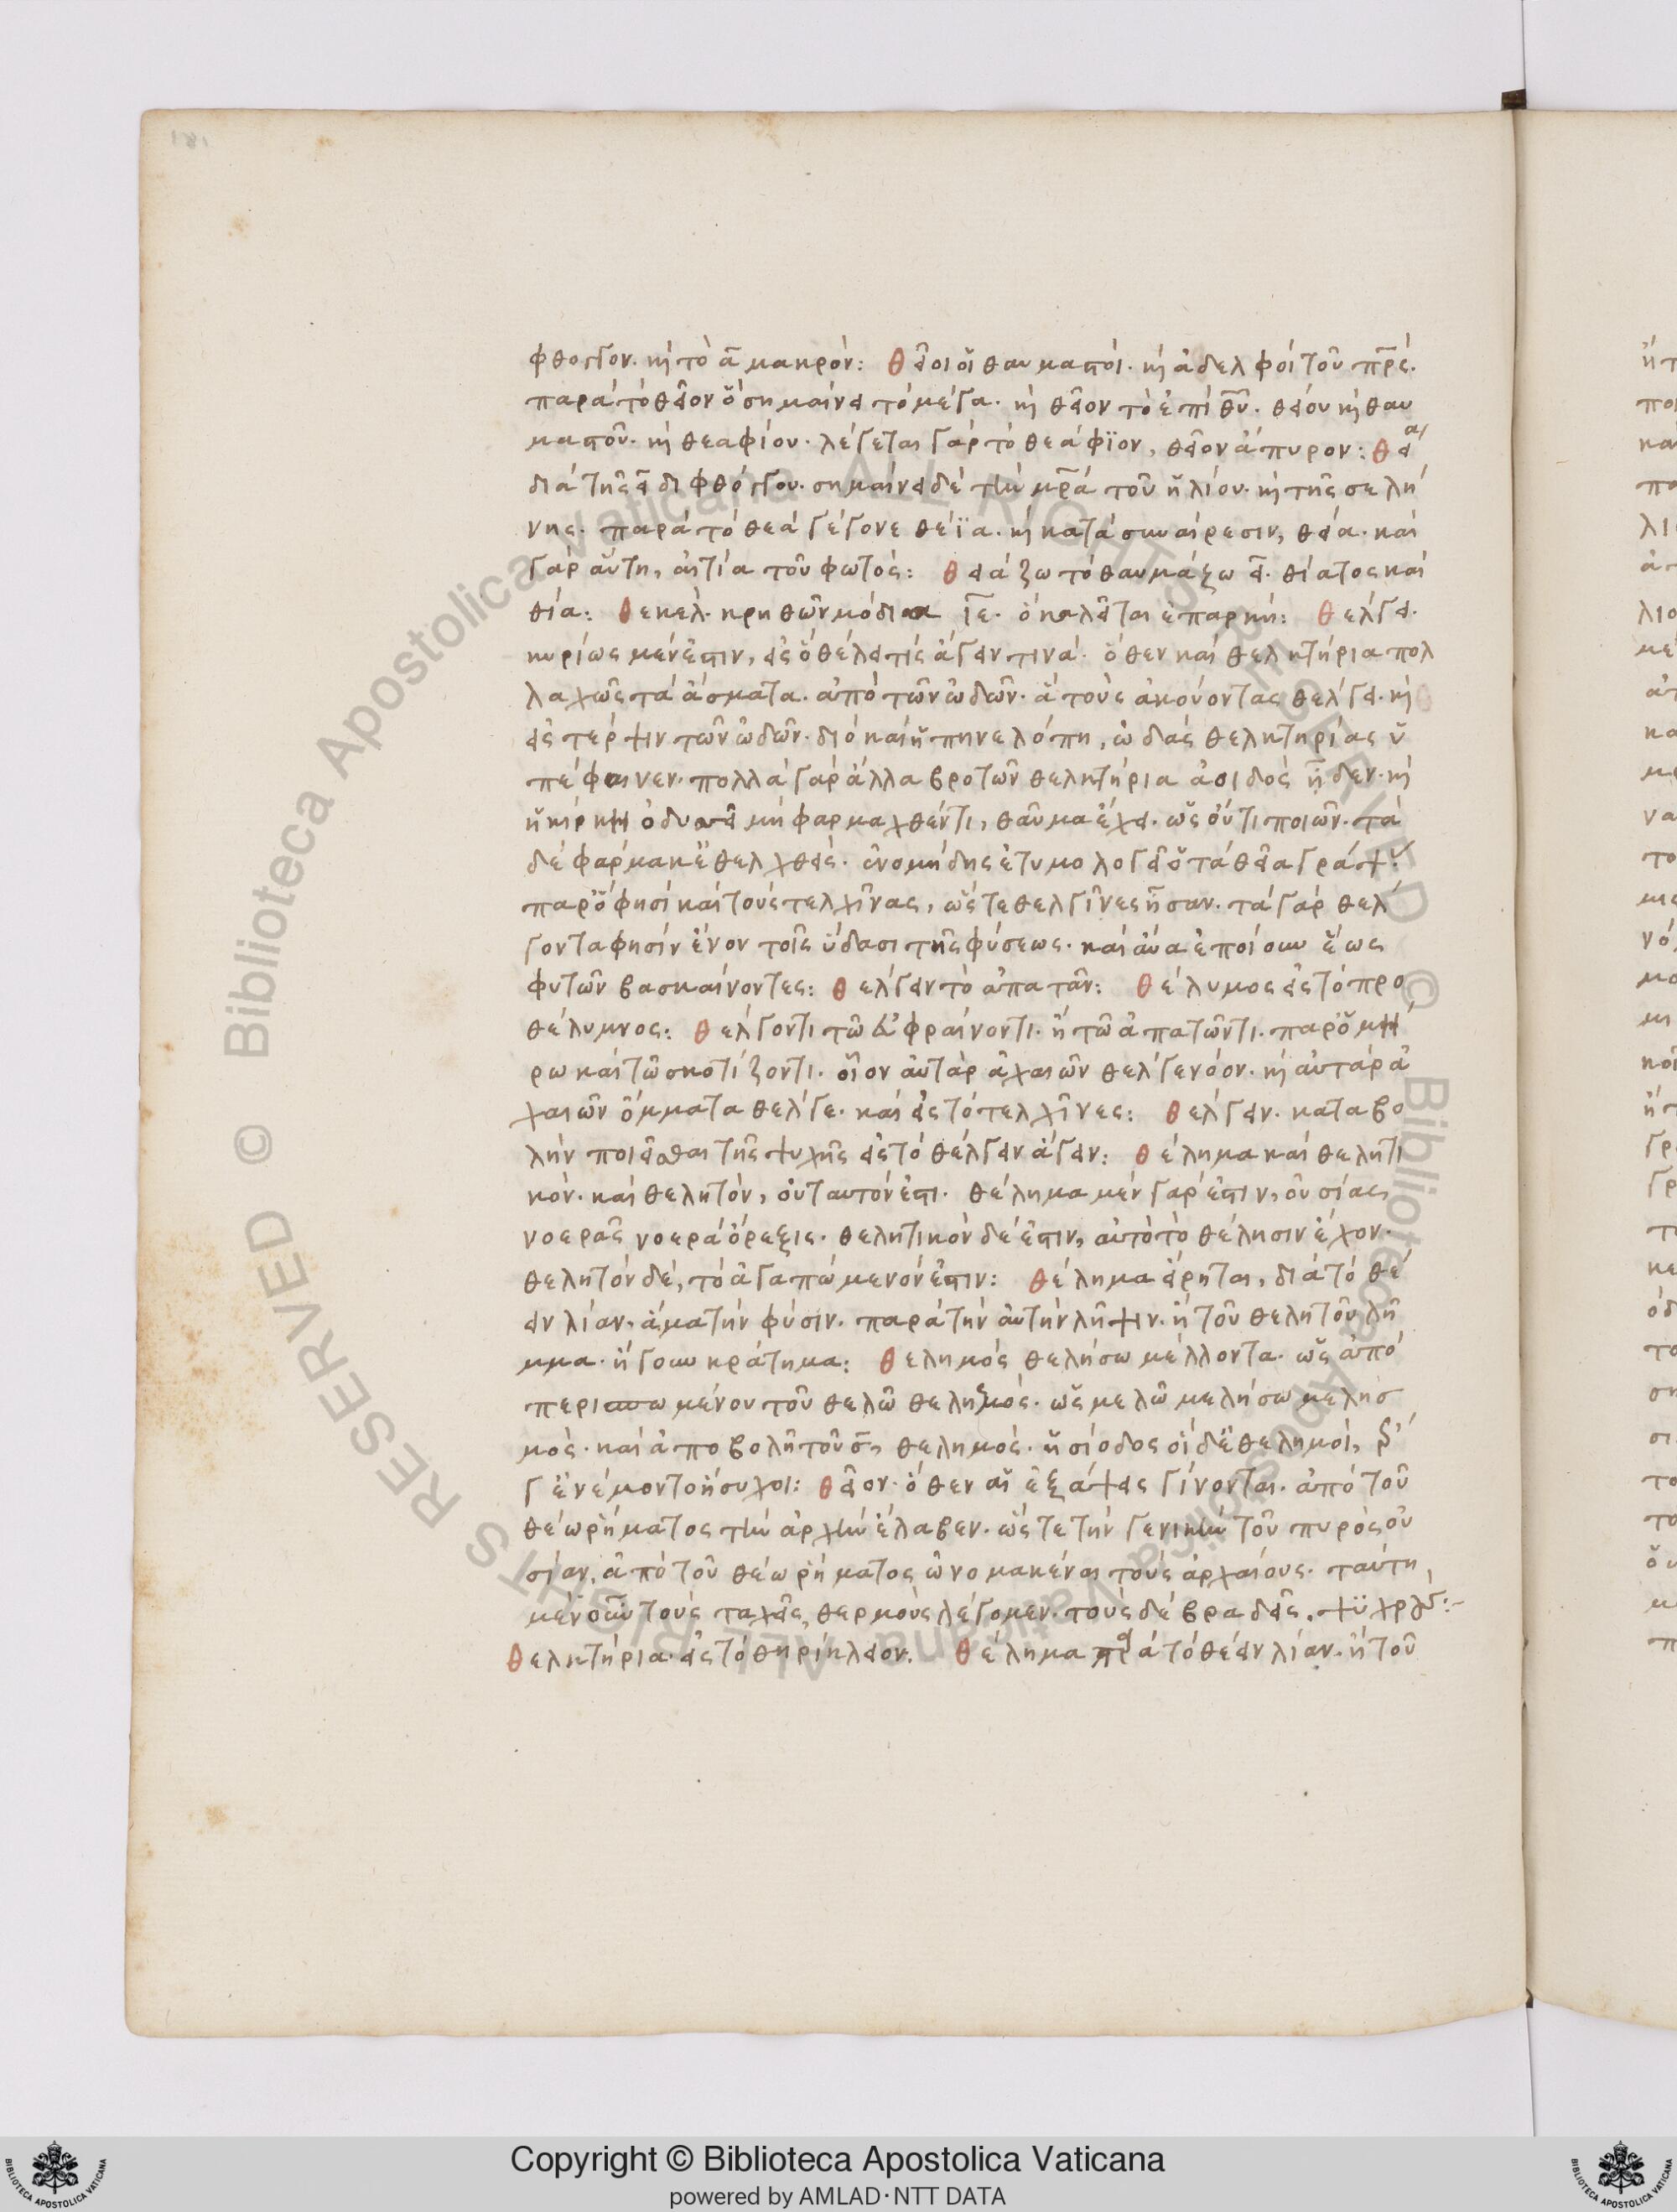 φθογγον. κὴ τὸ ᾱ μακρόν: θεῖοι οἱ θαυμαστοί. κὴ ἀδελφοὶ τοῦ πρ̅ς.
παρὰ τὸ θεῖον ὃ σημαίνει τὸ μέγα. κὴ θεῖον τὸ ἐπὶ θ̅υ. θείου κὴ θαυ
μαστοῦ. κὴ θεαφίου. λέγεται γὰρ τὸ θεάφϊον, θεῖον ἄπυρον: θεία
διὰ τῆς ει διφθόγγου. σημαίνει δὲ τὴν μρ̅α τοῦ ἡλίου. κὴ τῆς σελή
νης. παρὰ τὸ θεὰ γέγονε θέϊα. κὴ κατὰ συναίρεσιν, θεία. καὶ
γὰρ αὕτη, αἰτία τοῦ φωτός: θειάζω τὸ θαυμάζω ει. θίατος καὶ
θία: θεκελ. κρηθῶν μόδια ιε. ὁ καλεῖται ἐπαρκὴ: θέλγει.
κυρίως μέν ἐστιν, εἰς ὃ θέλει τίς ἄγειν τινά. ὅθεν καὶ θελκτήρια πολ
λαχῶς τὰ ἄσματα. ἀπὸ τῶν ὠδῶν. ἃ τοὺς ἀκούοντας θέλγει. κὴ
εἰς τέρψιν τῶν ὠδῶν. διὸ καὶ ἡ πηνελόπη, ὠδὰς θελκτηρίας ὑ
πέφαινεν. πολλὰ γὰρ ἄλλα βροτῶν θελκτήρια ἀοιδὸς ἦδεν. κὴ
ἡ κίρκη ὀδυσσεῖ μὴ φαρμαχθέντι, θαῦμα ἔχει. ὡς οὔτι ποιῶν. τὰ
δὲ φάρμακ' ἐθελχθεὶς. εὐνομήδης ἐτυμολογεῖ ὁ τὰ θεῖα γράψ
παρ' ὃ φησὶ καὶ τοὺς τελχῖνας, ὥστε θελγῖνες ἦσαν. τὰ γὰρ θέλ
γοντα φησὶν ἔνον τοῖς ὕδασι τῆς φύσεως. καὶ αὖα ἐποίουν ἕως
φυτῶν βασκαίνοντες: θέλγειν τὸ ἀπατᾶν: θέλυμος εἰς τὸ προ
θέλυμνος: θέλγοντι τῷ εὐφραίνοντι. ἢ τῷ ἀπατῶντι. παρ' ὁμή
ρω καὶ τῷ σκοτίζοντι. οἷον αὐτὰρ ἀχαιῶν θέλγε νόον. κὴ αὐτὰρ ἀ
χαιῶν ὄμματα θέλγε. καὶ εἰς τὸ τελχῖνες: θέλγειν. καταβο
λὴν ποιεῖσθαι τῆς ψυχῆς εἰς τὸ θέλγειν ἄγειν: θέλημα καὶ θελητι
κόν. καὶ θελητόν, οὐ ταυτόν ἐστι. θέλημα μὲν γάρ ἐστιν, οὐσίας
νοερᾶς νοερὰ ὄρεξις. θελητικὸν δέ ἐστιν, αὐτὸ τὸ θέλησιν ἔχον.
θελητὸν δὲ, τὸ ἀγαπώμενόν ἐστιν: θέλημα εἴρηται, διὰ τὸ θέ
ειν λίαν, ἅμα τὴν φύσιν. παρὰ τὴν αὐτὴν λῆψιν. ἢ τοῦ θελητοῦ λῆ
μμα. ἤγουν κράτημα: θελημός θελήσω μέλλοντα. ὡς ἀπὸ
περισσωμένου τοῦ θελῶ θελησμός. ὡς μελῶ μελήσω μελησ
μός. καὶ ἀποβολῆ τοῦ σ̅, θελημός. ἡσίοδος οἱ δ' ἐθελημοὶ, ἔρ
γ' ἐνέμοντο ἥσυχοι: θεῖον. ὅθεν αἱ ἐξάψεις γίνονται. ἀπὸ τοῦ
θεωρήματος τὴν ἀρχὴν ἔλαβεν. ὥστε τὴν γενικὴν τοῦ πυρὸς οὐ
σίαν, ἀπὸ τοῦ θεωρήματος ὠνομακέναι τοὺς ἀρχαίους. ταύτη
μὲν οὖν τοὺς ταχεῖς, θερμοὺς λέγομεν. τοὺς δὲ βραδεῖς, ψϋχρούς:-
θελκτήρια. εἰς τὸ θηρίκλειον. θέλημα παρὰ τὸ θέειν λίαν. ἢ τοῦ